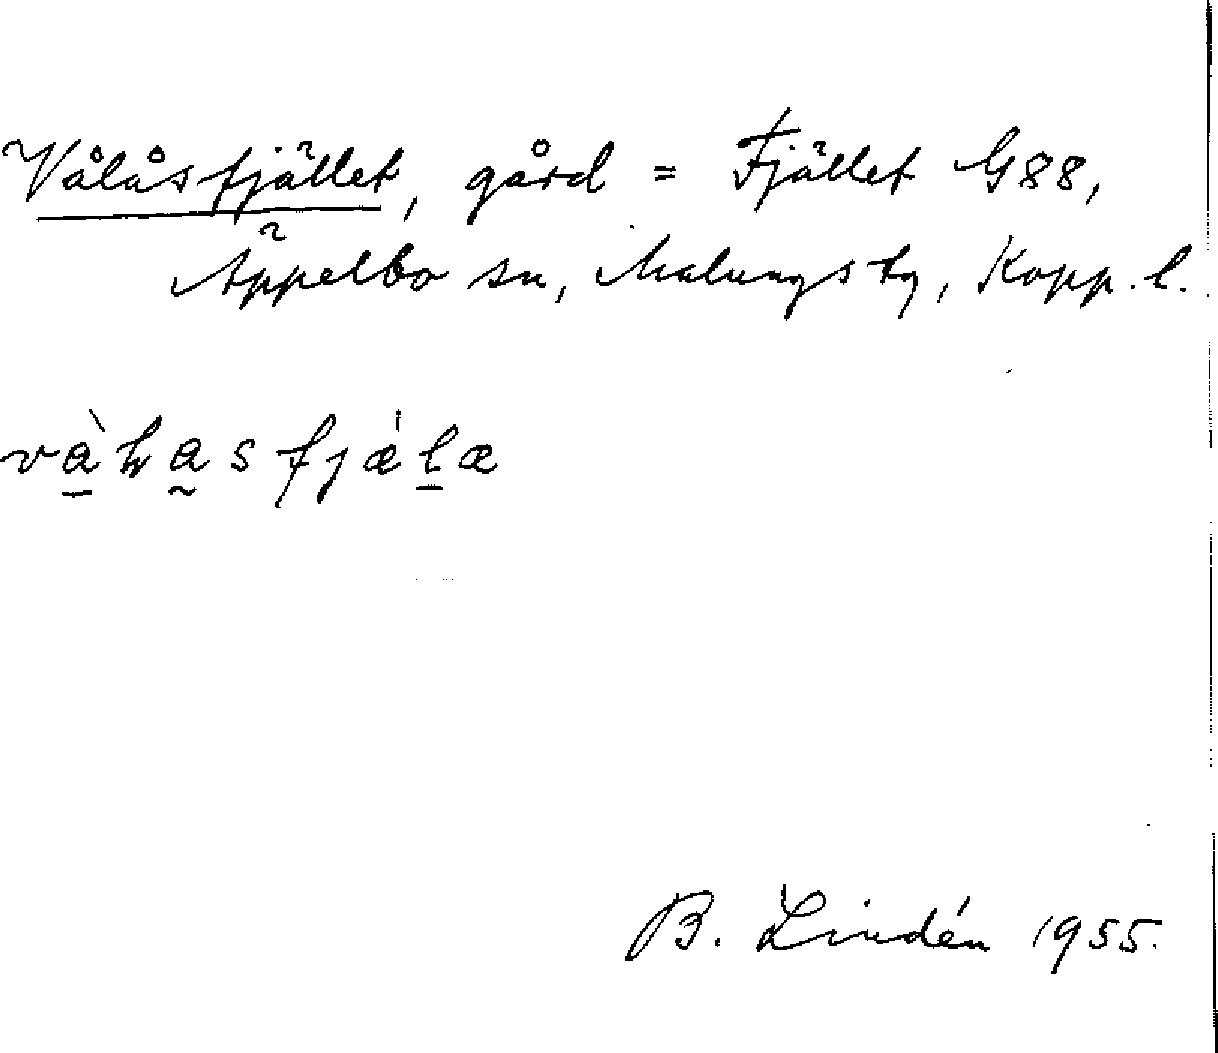 Vålåsfjället, gård = Fjället G88,
Äppelbo sn, Malungs tg, Kopp. l.
B. Lindén 1955.